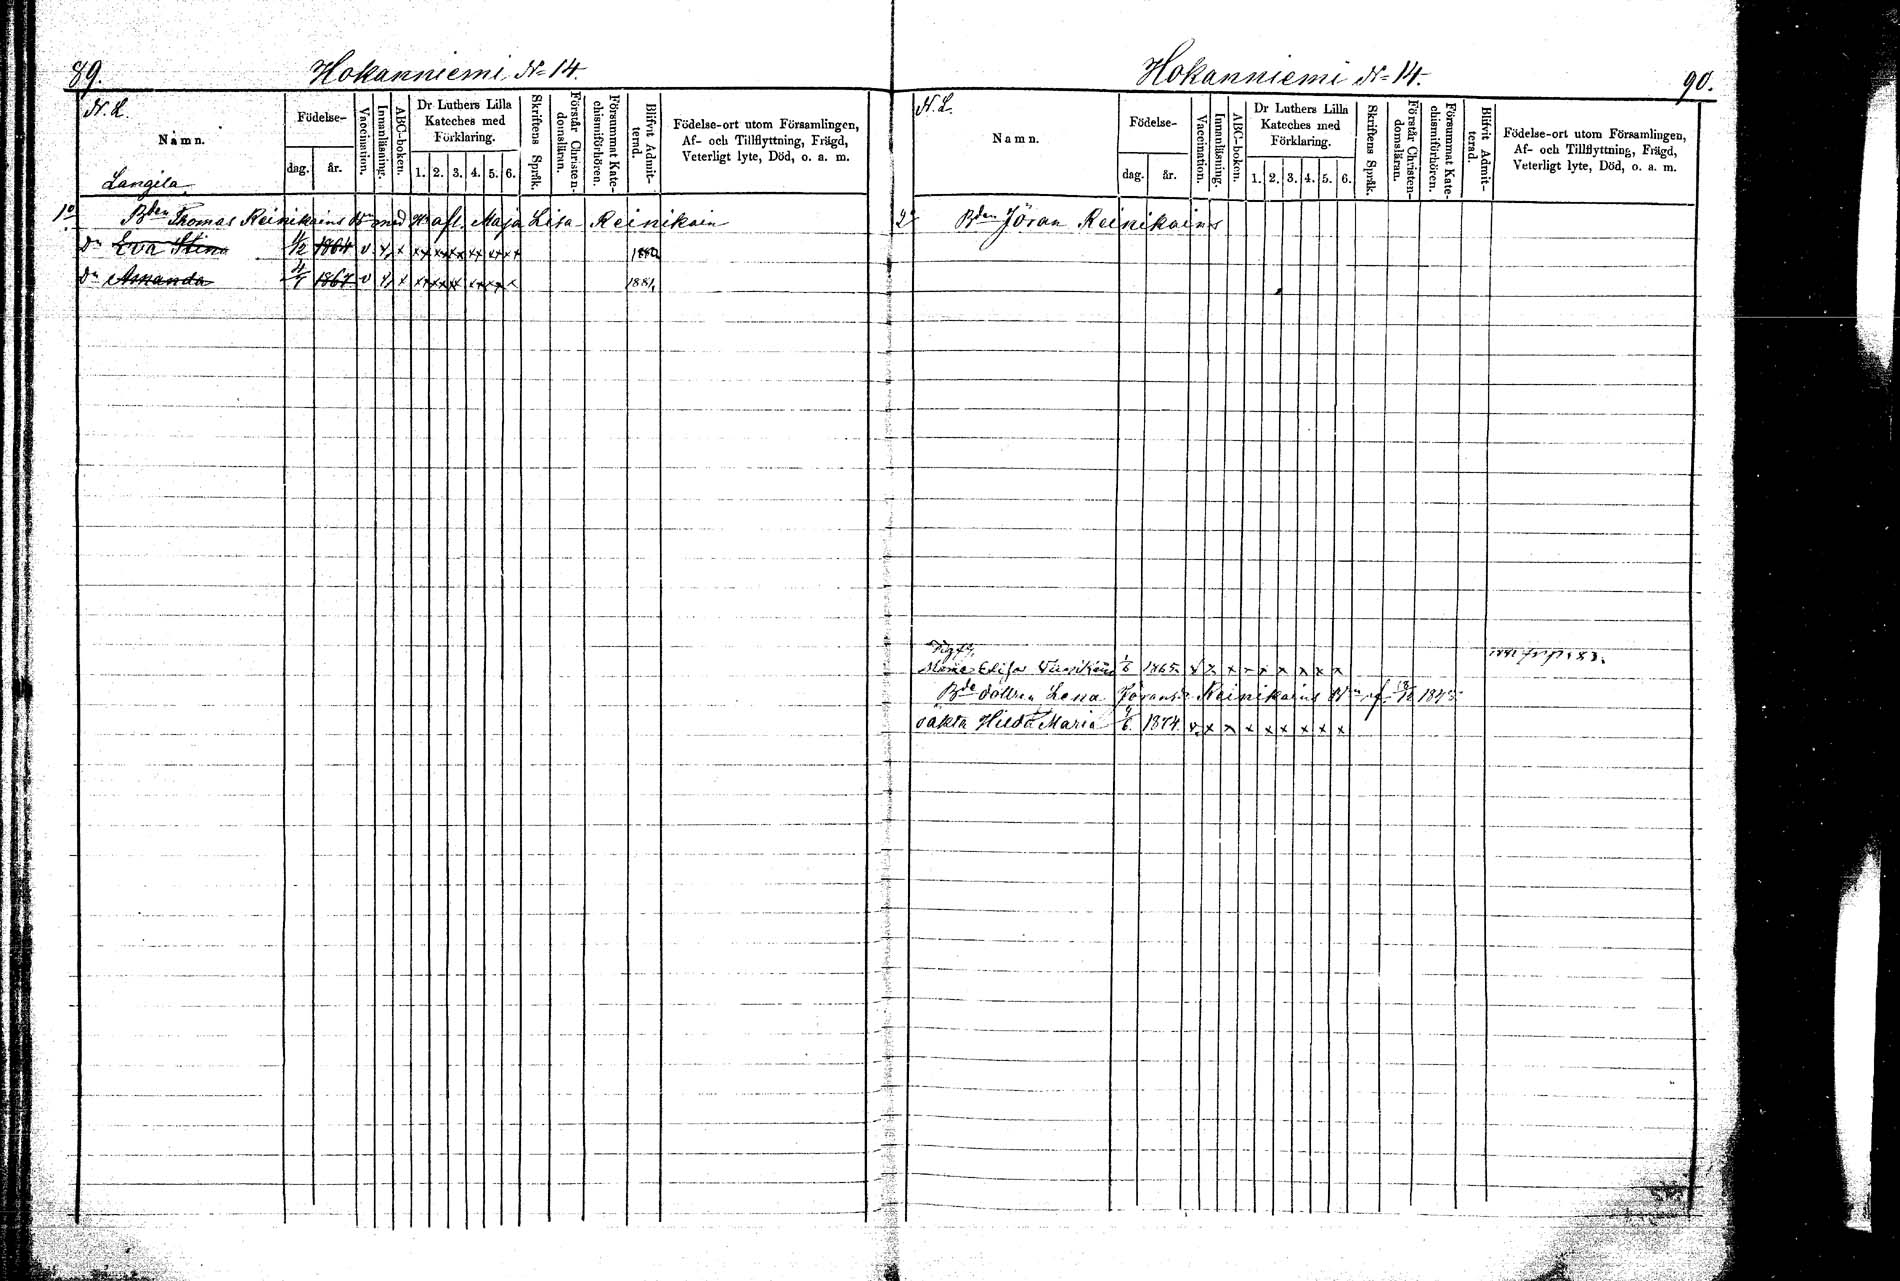 89.
Hokanniemi № 14.
N. L.
Namn.
Födelse-
dag.
år.
Vaccination.
Innanläsning.
ABC-boken.
Dr Luthers Lilla
Kateches med
Förklaring.
1. 2. 3. 4. 5. 6.
Skriftens Språk.
Förstår Christen-
domsläran.
Försummat Kate-
chismiförhören.
Blifvit Admit-
terad.
Födelse-ort utom Församlingen,
Af- och Tillflyttning, Frägd,
Veterligt lyte, Död, o. a. m.
Langila
1o Bden Thomas Reinikains dr med H: afl. Maja Lisa Reinikain
Dr Eva Stina 1/2 1864 v x x x x x x x x x x x x 1882
Dr Amanda 4/1 1867 v x x x x x x x x x x x 1884
Hokanniemi № 14.
90.
N. L.
Namn.
Födelse-
dag.
år.
Vaccination.
Innanläsning.
ABC-boken.
Dr Luthers Lilla
Kateches med
Förklaring.
1. 2. 3. 4. 5. 6.
Skriftens Språk.
Förstår Christen-
domsläran.
Försummat Kate-
chismiförhören.
Blifvit Admit-
terad.
Födelse-ort utom Församlingen,
Af- och Tillflyttning, Frägd,
Veterligt lyte, Död, o. a. m.
2o Bden Jöran Reinikains
Elisa 1/6 1865 x x x x x x x x
Bde dottren Lena Jöransdr Reinikains
oäkta Hilda Maria 9/6 1874 v. x x x x x x x x